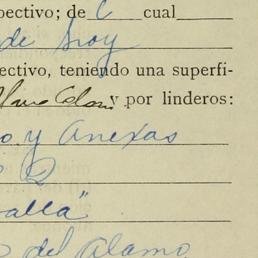 pectivo; de l cual
de hoy
ectivo, teniendo una superfi-
y por linderos:
o y Anexas
alla"
del Alamo